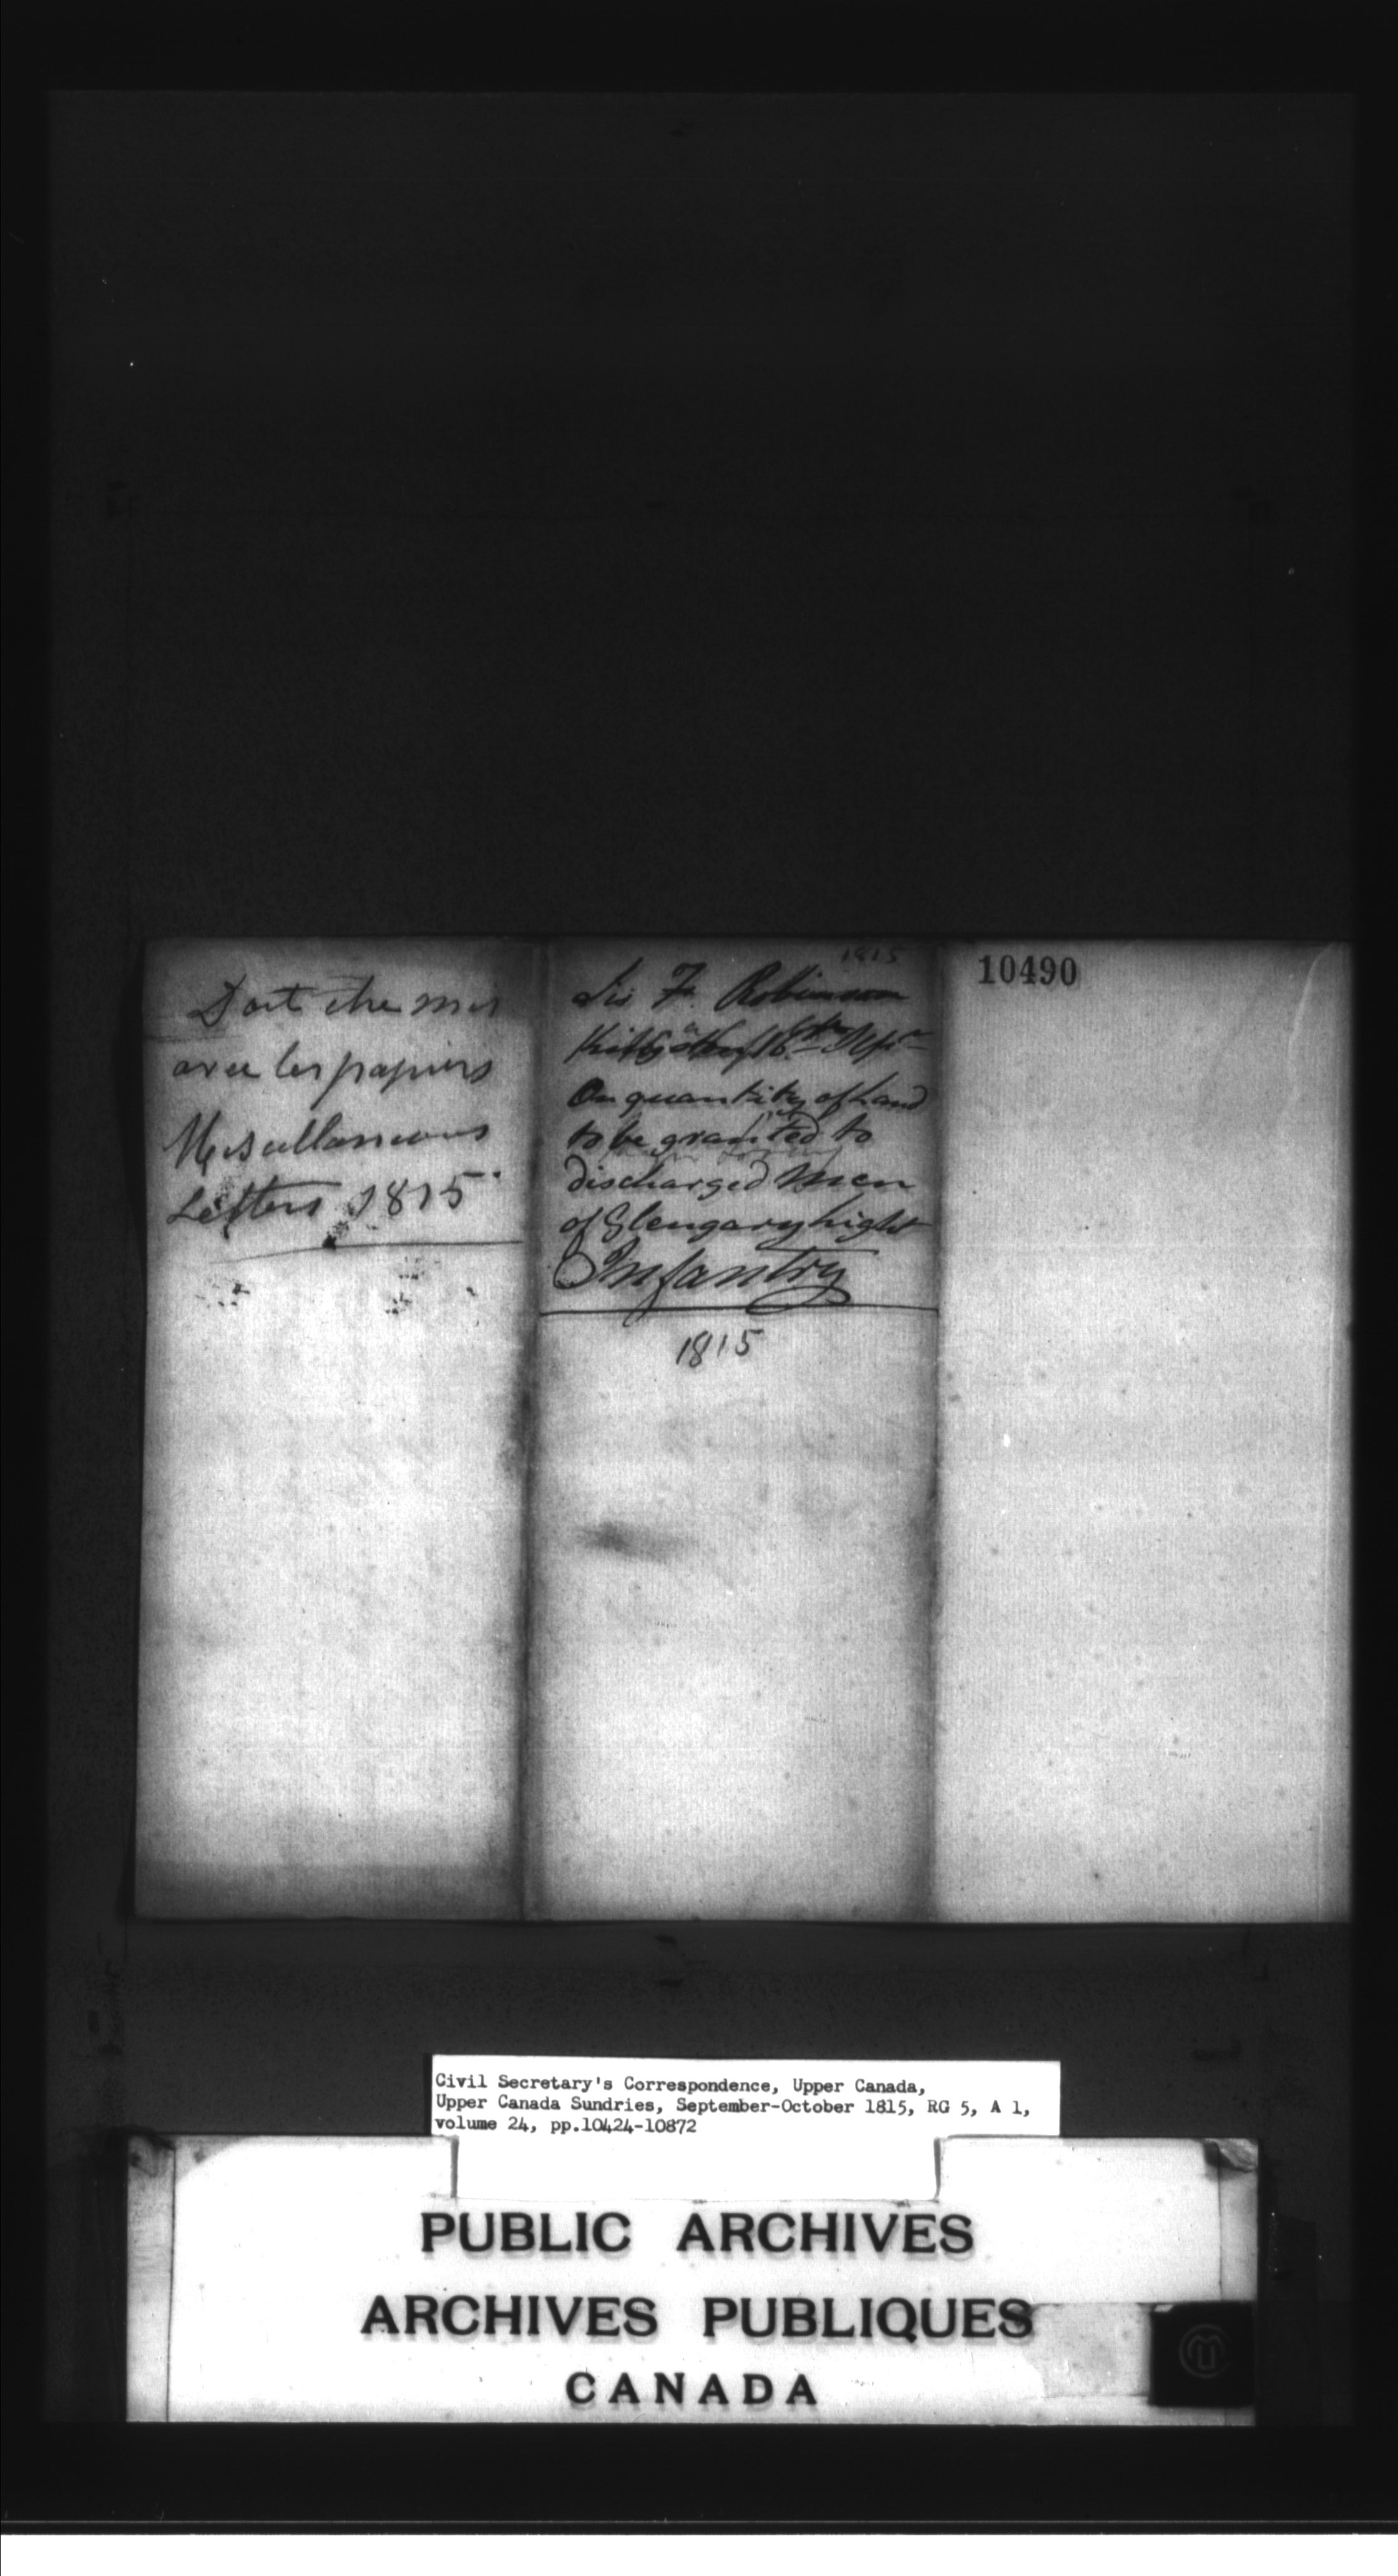 Doit etre mis
avec les papiers
Miscellaneous
Letters 1815
1815
Sir F. Robinson
Kingston 16th Sepr
On quantity of Land
to be granted to
discharged Men
of Glengary Light
Infantry
1815
10490
Civil Secretary's Correspondence, Upper Canada,
Upper Canada Sundries, September-October 1815, RG 5, A 1,
volume 24, pp.10424-10872
PUBLIC ARCHIVES
ARCHIVES PUBLIQUES
CANADA